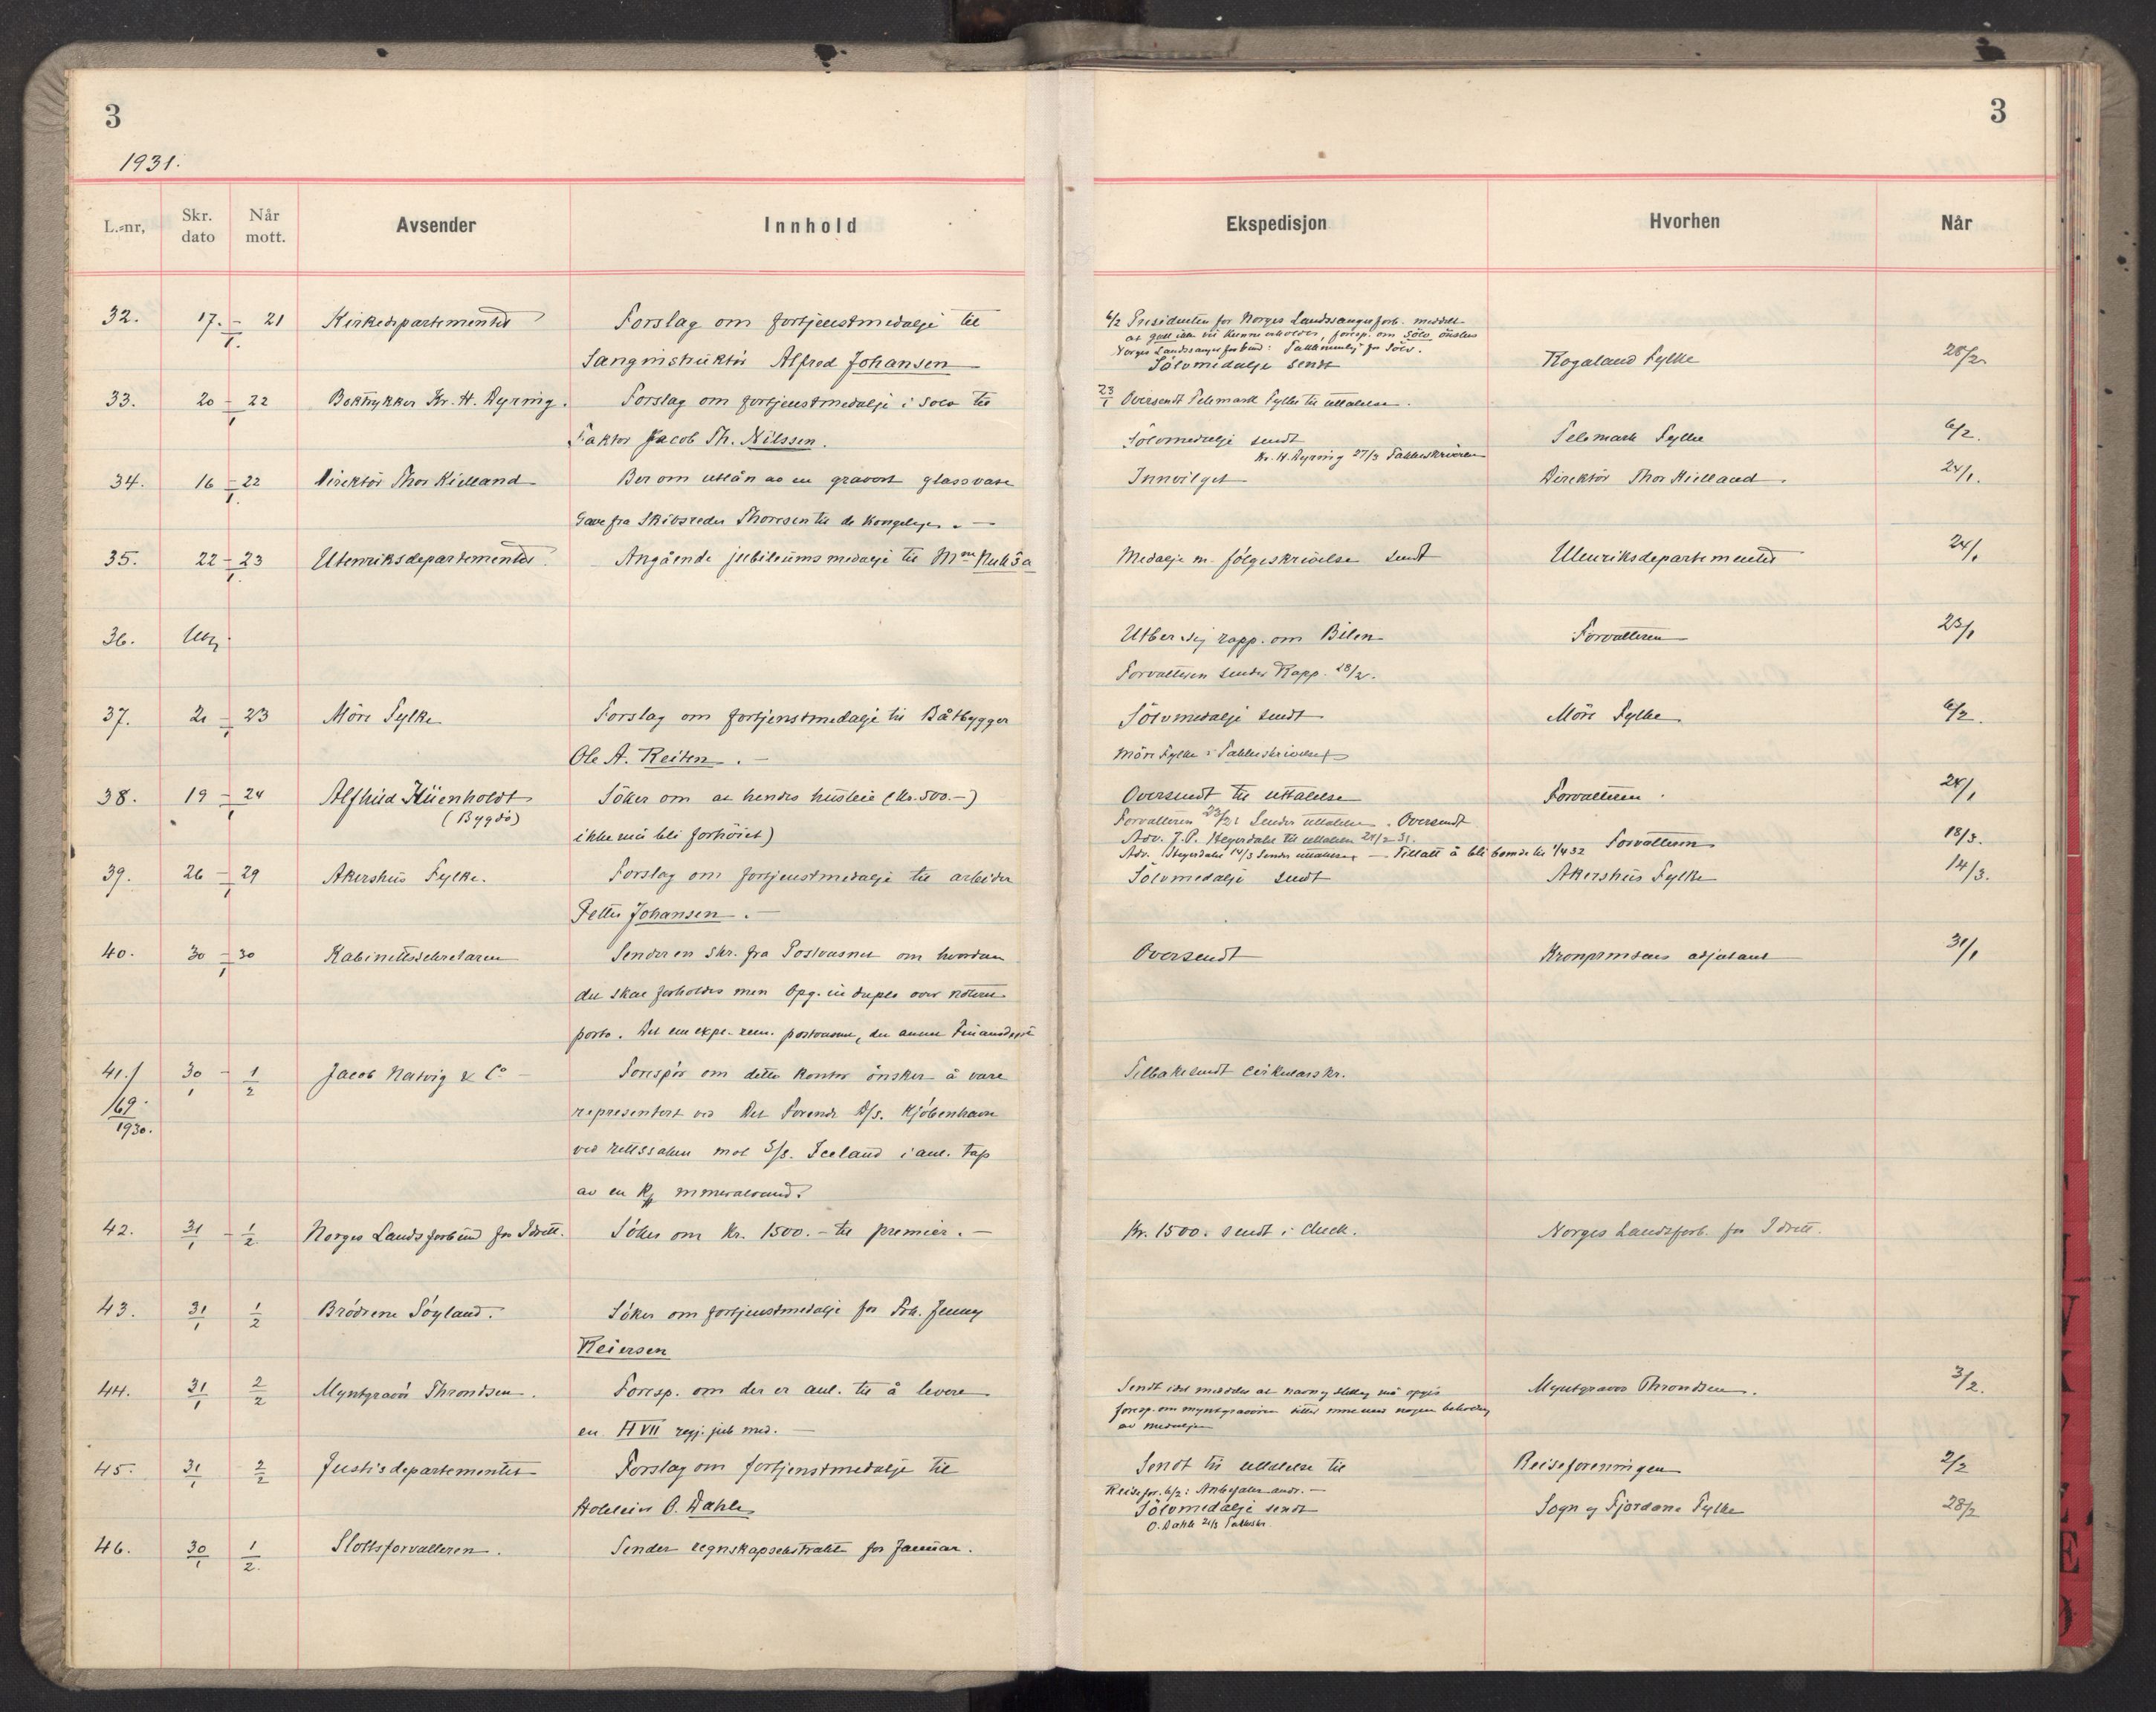 3
3
1931.
L.-nr,
Skr. dato
Når mott.
Avsender
Innhold
Ekspedisjon
Hvorhen
Når
32. 17. - 21 Kirkedepartementet Forslag om fortjenstmedalje til
1.
Sanginstruktör Alfred Johansen
6/2 Presidenten for Norges Landssangerforb. meddelt
at gull ikke vil kunne erholdes, foresp. om sölv önskes
Norges Landssangerforbund: for Sölv.
Sölvmedalje sendt Rogaland Fylke 28/2
33. 20 - 22 Boktrykker Kr. H. Dyring. Forslag om fortjenstmedalje i sölv til
1
Faktor Jacob Th. Nilssen.
23/1 Oversendt Telemark Fylke til uttalelse.
Sölvmedalje sendt Telemark Fylke 6/2.
Kr. H. Dyring 27/3 Takkeskrivelse
34. 16 - 22 Direktör Thor Kielland Ber om utlån av en gravert glassvase
1.
Gave fra Skibsreder Thoresen til de kongelige. -
Innvilget Direktör Thor Kielland. 24/1.
35. 22 - 23 Utenriksdepartementet Angående jubileumsmedalje til Mme
1.
Medalje m. fölgeskrivelse sendt Utenriksdepartementet 24/1
36. Utg. Utber sig rapp. om Bilen Forvalteren 23/1
Forvalteren sender Rapp. 28/2.
37. 21 - 23 Möre Fylke Forslag om fortjenstmedalje til Båtbygger
1
Ole A. Reiten. -
Sölvmedalje sendt Möre Fylke 6/2.
Möre Fylke : Takkeskrivelse
38. 19 - 24 Alfhild Hüenholdt Söker om at hendes husleie (Kr. 500.-)
1
(Bygdö) ikke må bli forhöiet)
Oversendt til uttalelse Forvalteren. 24/1
Forvalteren 23/2 Sender uttalelse. Oversendt
Adv. J.P. Heyerdahl til uttalelse 24/2 31.
Adv. Heyerdahl 14/3 Sender uttalelse - Tillatt å bli boende til 1/4 32 Forvalteren 18/3.
39. 26 - 29 Akershus Fylke. Forslag om fortjenstmedalje til arbeider
1
Petter Johansen. -
Sölvmedalje sendt Akershus Fylke 14/3.
40. 30 - 30 Kabinettssekretæren Sender en skr. fra Postvesnet om hvordan
1
det skal forholdes men Opg. in duplo over noteret
porto. Det ene eksp. postvesnet, det annet Finansdept
Oversendt Kronprinsens adjutant 31/1
41./ 30/1 - 1/2 Jacob Natvig & Co - Forespör om dette kontor önsker å være
/69. representert ved Det Forende D/S. Kjöbenhavn
1930.
ved rettssaken mot S/S. Iceland i anl. tap
av en Kg mineralvand.
Tilbakesendt cirkulærskr.
42. 31/1 - 1/2 Norges Landsforbund for Idrett. Söker om Kr. 1500.- til premier. -
Kr. 1500. sendt i check. Norges Landsforb. for Idrett.
43. 31/1 1/2 Brödrene Söyland. Söker om fortjenstmedalje for Frk. Jenny
Reiersen
44. 31/1 2/2 Myntgravör Throndsen. Foresp. om der er anl. til å levere
en H VII regj. jub med. -
Sendt idet meddeles at navn og stilling må opgis
foresp. om myntgravören sitter inne med nogen beholdng
av medaljen
Myntgravör Throndsen. 3/2.
45. 31/1 2/2 Justisdepartementet Forslag om fortjenstmedalje til
Hoteleier O. Dahle
Sendt til uttalelse til Reiseforeningen 2/2
Reisefor. 6/2: Anbefaler andr. -
Sölvmedalje sendt Sogn og Fjordane Fylke 28/2
O. Dahle 21/3 Takkeskr.
46. 30/1 1/2. Slottsforvalteren. Sender regnskapsekstrakt for Januar.